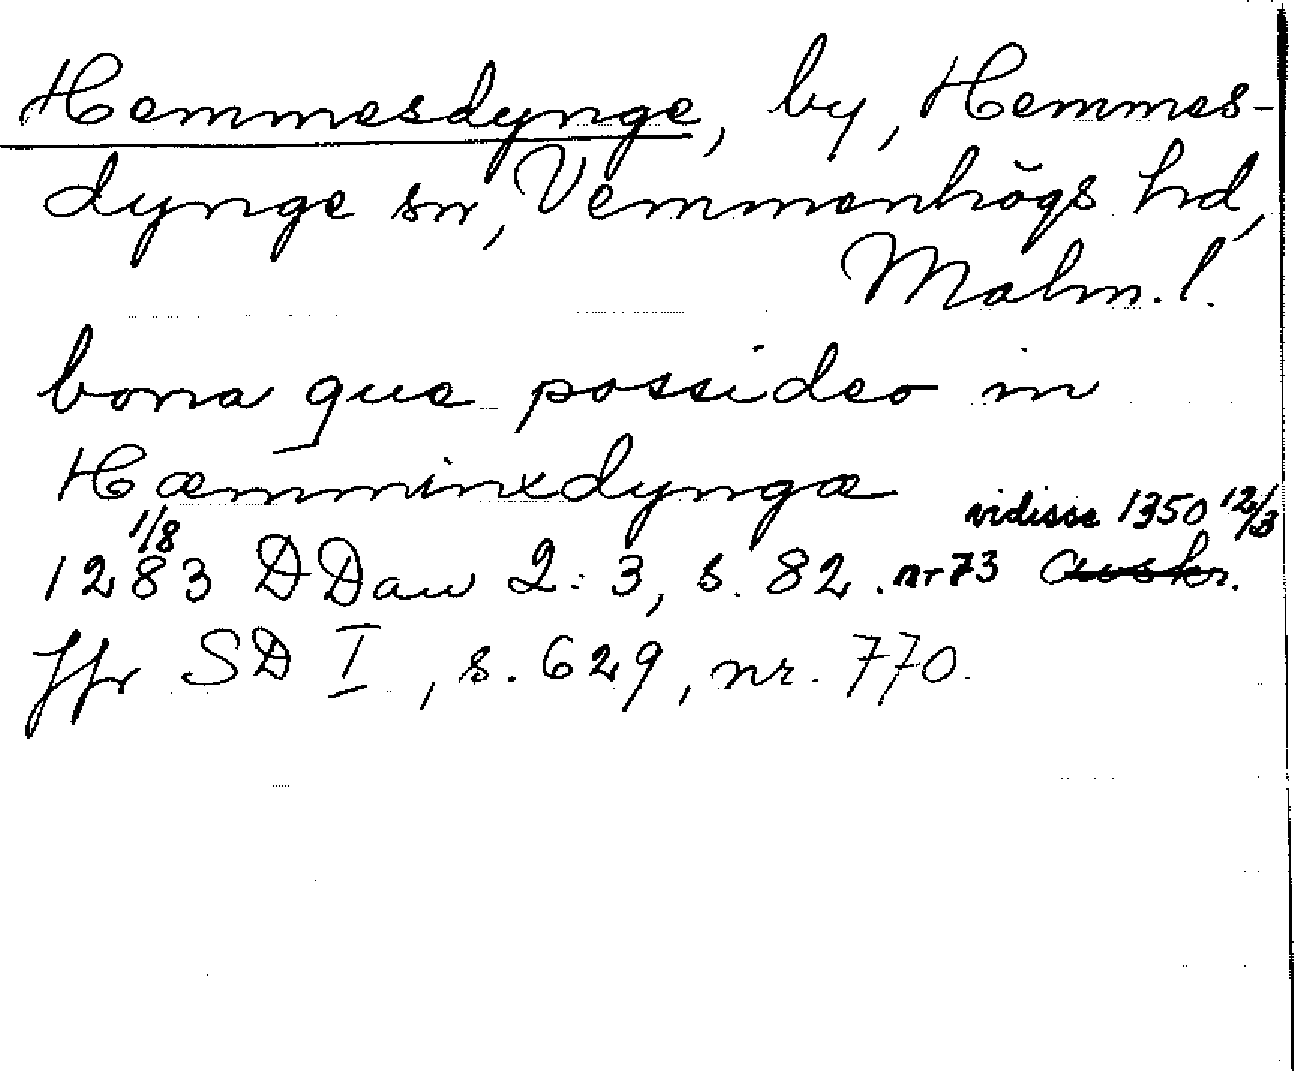 Hemmesdynge, by, Hemmes-
dynge sn, Vemmenhögs hd,
Malm. l.
bona que possideo in
Hæmminxdyngæ
vidisse 1350 12/3
1/8
1283 DDan 2:3, s. 82. nr 73 avskr.
Jfr SD I, s. 629, nr. 770.